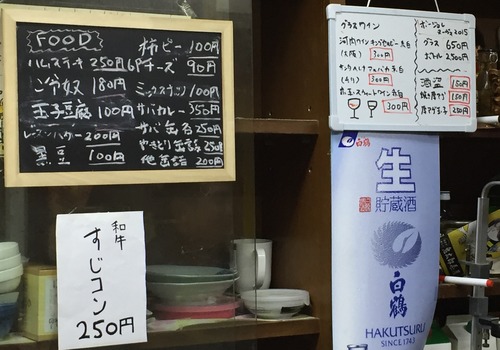 FOOD
ハムステーキ 250円
ご冷奴 180円
玉子豆腐 100円
レーズンバター 200円
黒豆 100円
柿ピー 100円
6Pチーズ 90円
ミックスナッツ 100円
サバカレー 350円
サバ缶詰 250円
やきとり缶詰 250円
他缶詰 200円
和牛
すじコン
250円
グラスワイン
河内ワイン
(大阪) 300円
300円
300円
2015
グラス 650円
ボトル 2500円
酒盗 150円
150円
250円
白鶴
生
貯蔵酒
白鶴
HAKUTSURU
SINCE 1743